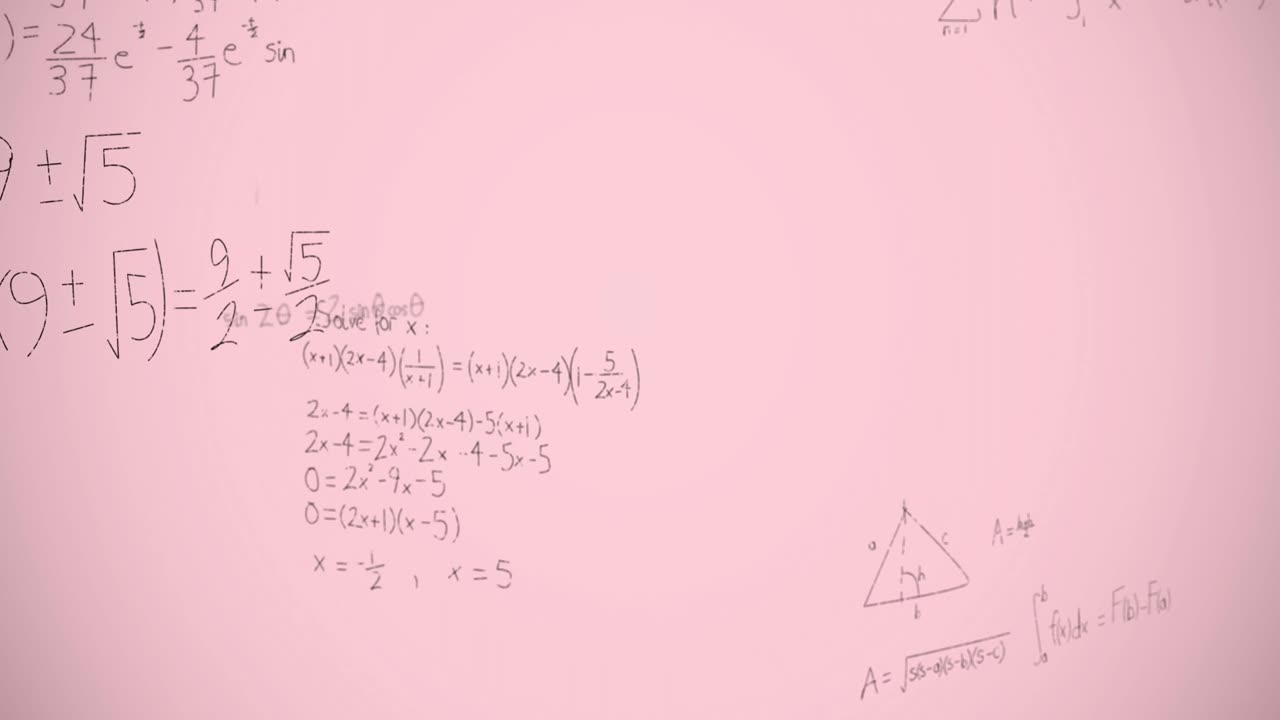 )= 24/37 e^-t/2 - 4/37 e^-t/2 sin
9 ± √5
(9 ± √5) = 9/2 ± √5/2
sin 2θ = 2 sin θ cos θ
Solve for x :
(x+1)(2x-4)(1/(x+1)) = (x+1)(2x-4)(1 - 5/(2x-4))
2x-4=(x+1)(2x-4)-5(x+1)
2x-4=2x²-2x -4-5x-5
0=2x²-9x-5
0=(2x+1)(x-5)
x = -1/2 , x = 5
n=1
a c
h
b
A=
A = √s(s-a)(s-b)(s-c)
∫_a^b f(x)dx = F(b)-F(a)